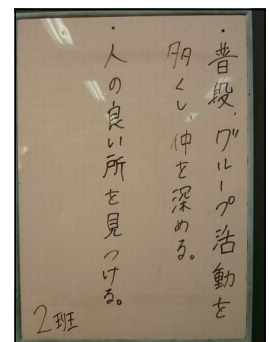 ・普段、グループ活動を
多くし、仲を深める。
・人の良い所を見つける。
2班